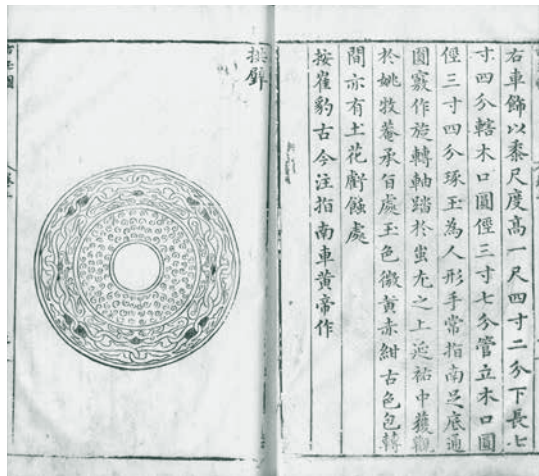 右車飾以黍尺度高一尺四寸二分下長七
寸四分轄木口圓徑三寸七分管立木口圓
徑三寸四分琢玉為人形手常指南足底通
圓竅作旋轉軸踏於蚩尤之上延祐中獲觀
於姚牧菴承旨處玉色微黃赤紺古色包轉
間亦有土花蝕處
按崔豹古今注指南車黃帝作
璧